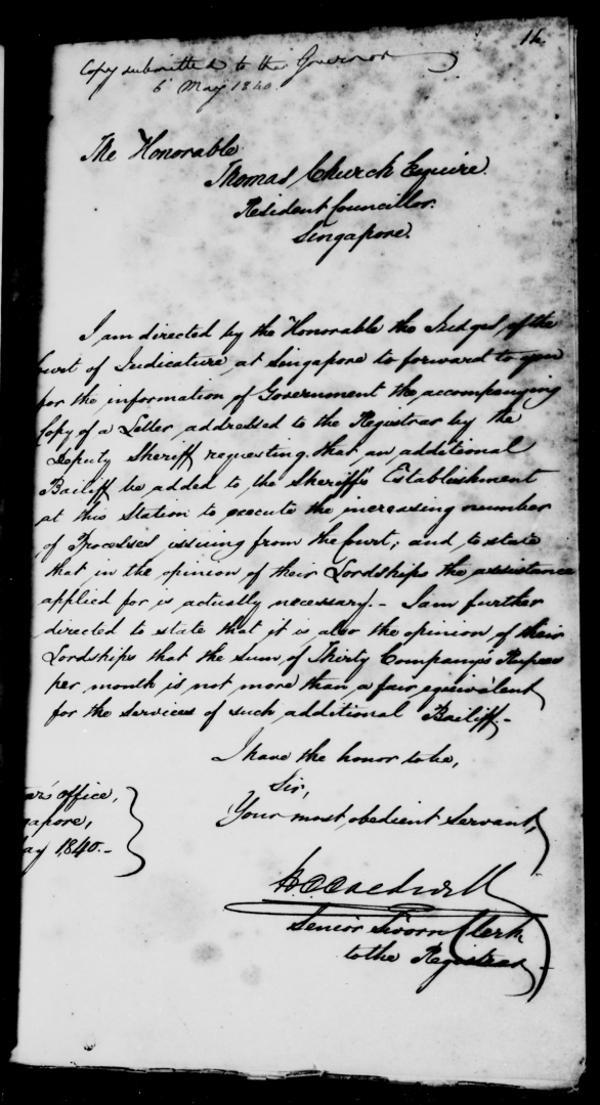 16.
Copy submitted to the Governor
6 May 1840.
The Honorable
Thomas Church Esquire.
Resident Councillor.
Singapore.
I am directed by the Honorable the Judges of the
Court of Judicature at Singapore to forward to you
for the information of Government the accompanying
Copy of a Letter addressed to the Registrar by the
Deputy Sheriff requesting that an additional
Bailiff be added to the Sheriff's Establishment
at this Station to execute the increasing number
of Processes issuing from the Court; and to state
that in the opinion of their Lordships the assistance
applied for is actually necessary. - I am further
directed to state that it is also the opinion of their
Lordships that the Sum of Thirty Company's Rupees
per month is not more than a fair equivalent
for the services of such additional Bailiff. -
I have the honor to be,
Sir,
Your most obedient Servant,
ar's office,
gapore,
ay 1840. -
Senior Sworn Clerk
to the Registrar -